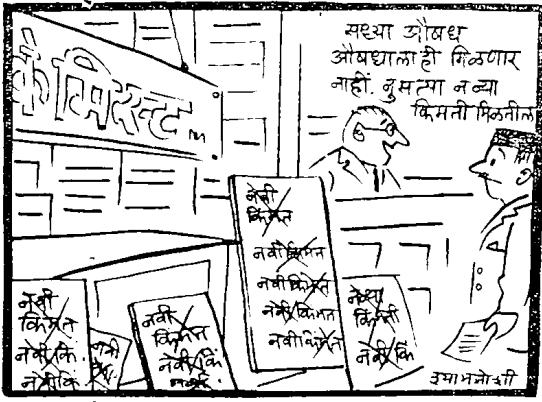 सध्या औषध
औषधालाही मिळणार
नाहीं. नुसत्या नव्या
किमती मिळतील
केमिस्ट
नवी
किंमत
नवी किंमत
नवी किंमत
नवी किंमत
नवी किंमत
नवी
किंमत
नवी कि
नवी कि
नवी
नवी
किंमत
नवी कि
नव्या
किंमती
नवी कि